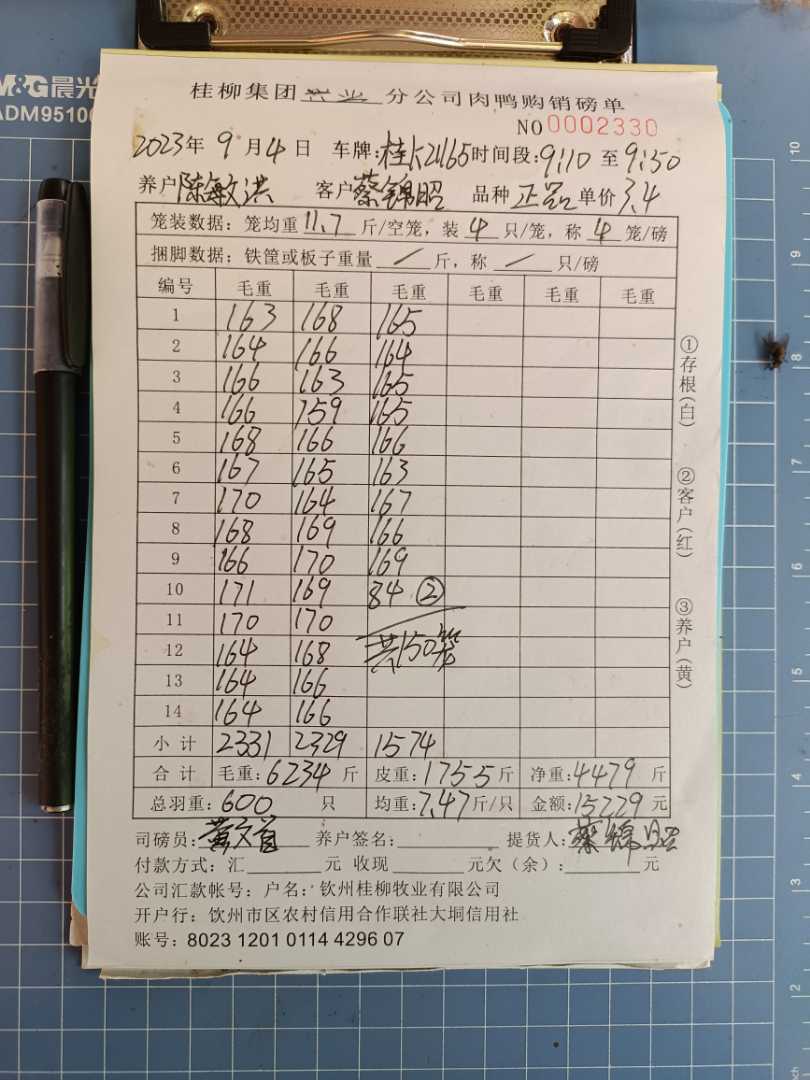 M&G 晨光
ADM9510
桂柳集团 牧业 分公司肉鸭购销磅单
NO 0002330
2023年 9 月 4 日 车牌:桂K21165 时间段:9:10 至 9:50
养户 陈敏洪 客户 蔡锦昭 品种 正品 单价 3.4
笼装数据: 笼均重 11.7 斤/空笼, 装 4 只/笼, 称 4 笼/磅
捆脚数据: 铁筐或板子重量 / 斤, 称 / 只/磅
编号 毛重 毛重 毛重 毛重 毛重 毛重
1 163 168 165
2 164 166 164
3 166 163 165
4 166 159 165
5 168 166 166
6 167 165 163
7 170 164 167
8 168 169 166
9 166 170 169
10 171 169 84 ②
11 170 170
12 164 168 共150笼
13 164 166
14 164 166
小 计 2331 2329 1574
合 计 毛重:6234 斤 皮重:1755 斤 净重:4479 斤
总羽重:600 只 均重:7.47 斤/只 金额:15229 元
司磅员: 养户签名: 提货人:蔡锦昭
付款方式: 汇 元 收现 元欠(余): 元
公司汇款帐号: 户名: 钦州桂柳牧业有限公司
开户行: 钦州市区农村信用合作联社大垌信用社
账号: 8023 1201 0114 4296 07
①存根(白)
②客户(红)
③养户(黄)
10
8
7
6
5
3
2